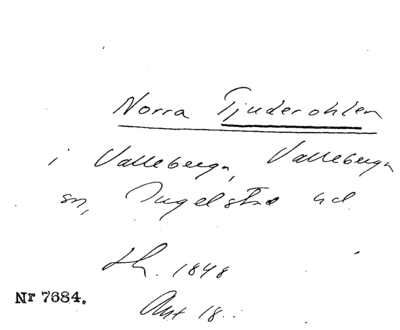 Norra Tjuderohlen
i Valleberga, Valleberga
sn, Ingelstad hd
Lh. 1848
Nr 7684.
Akt 18